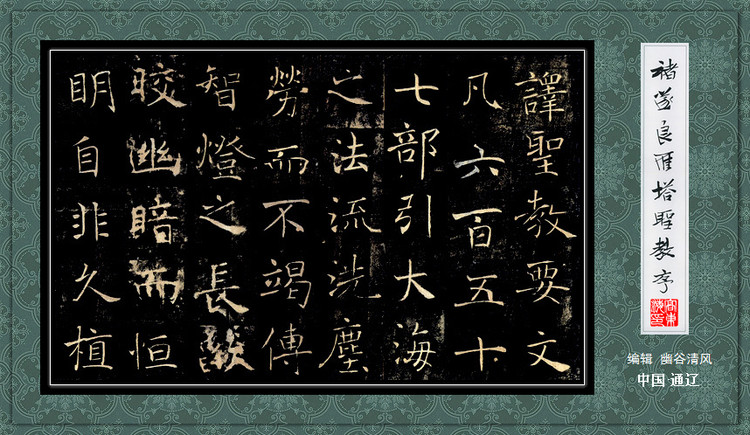 褚遂良雁塔聖教序
譯聖教要文
凡六百五十
七部引大海
之法流洗塵
勞而不竭傳
智燈之長燄
皎幽暗而恒
明自非久植
编辑 幽谷清风
中国·通辽